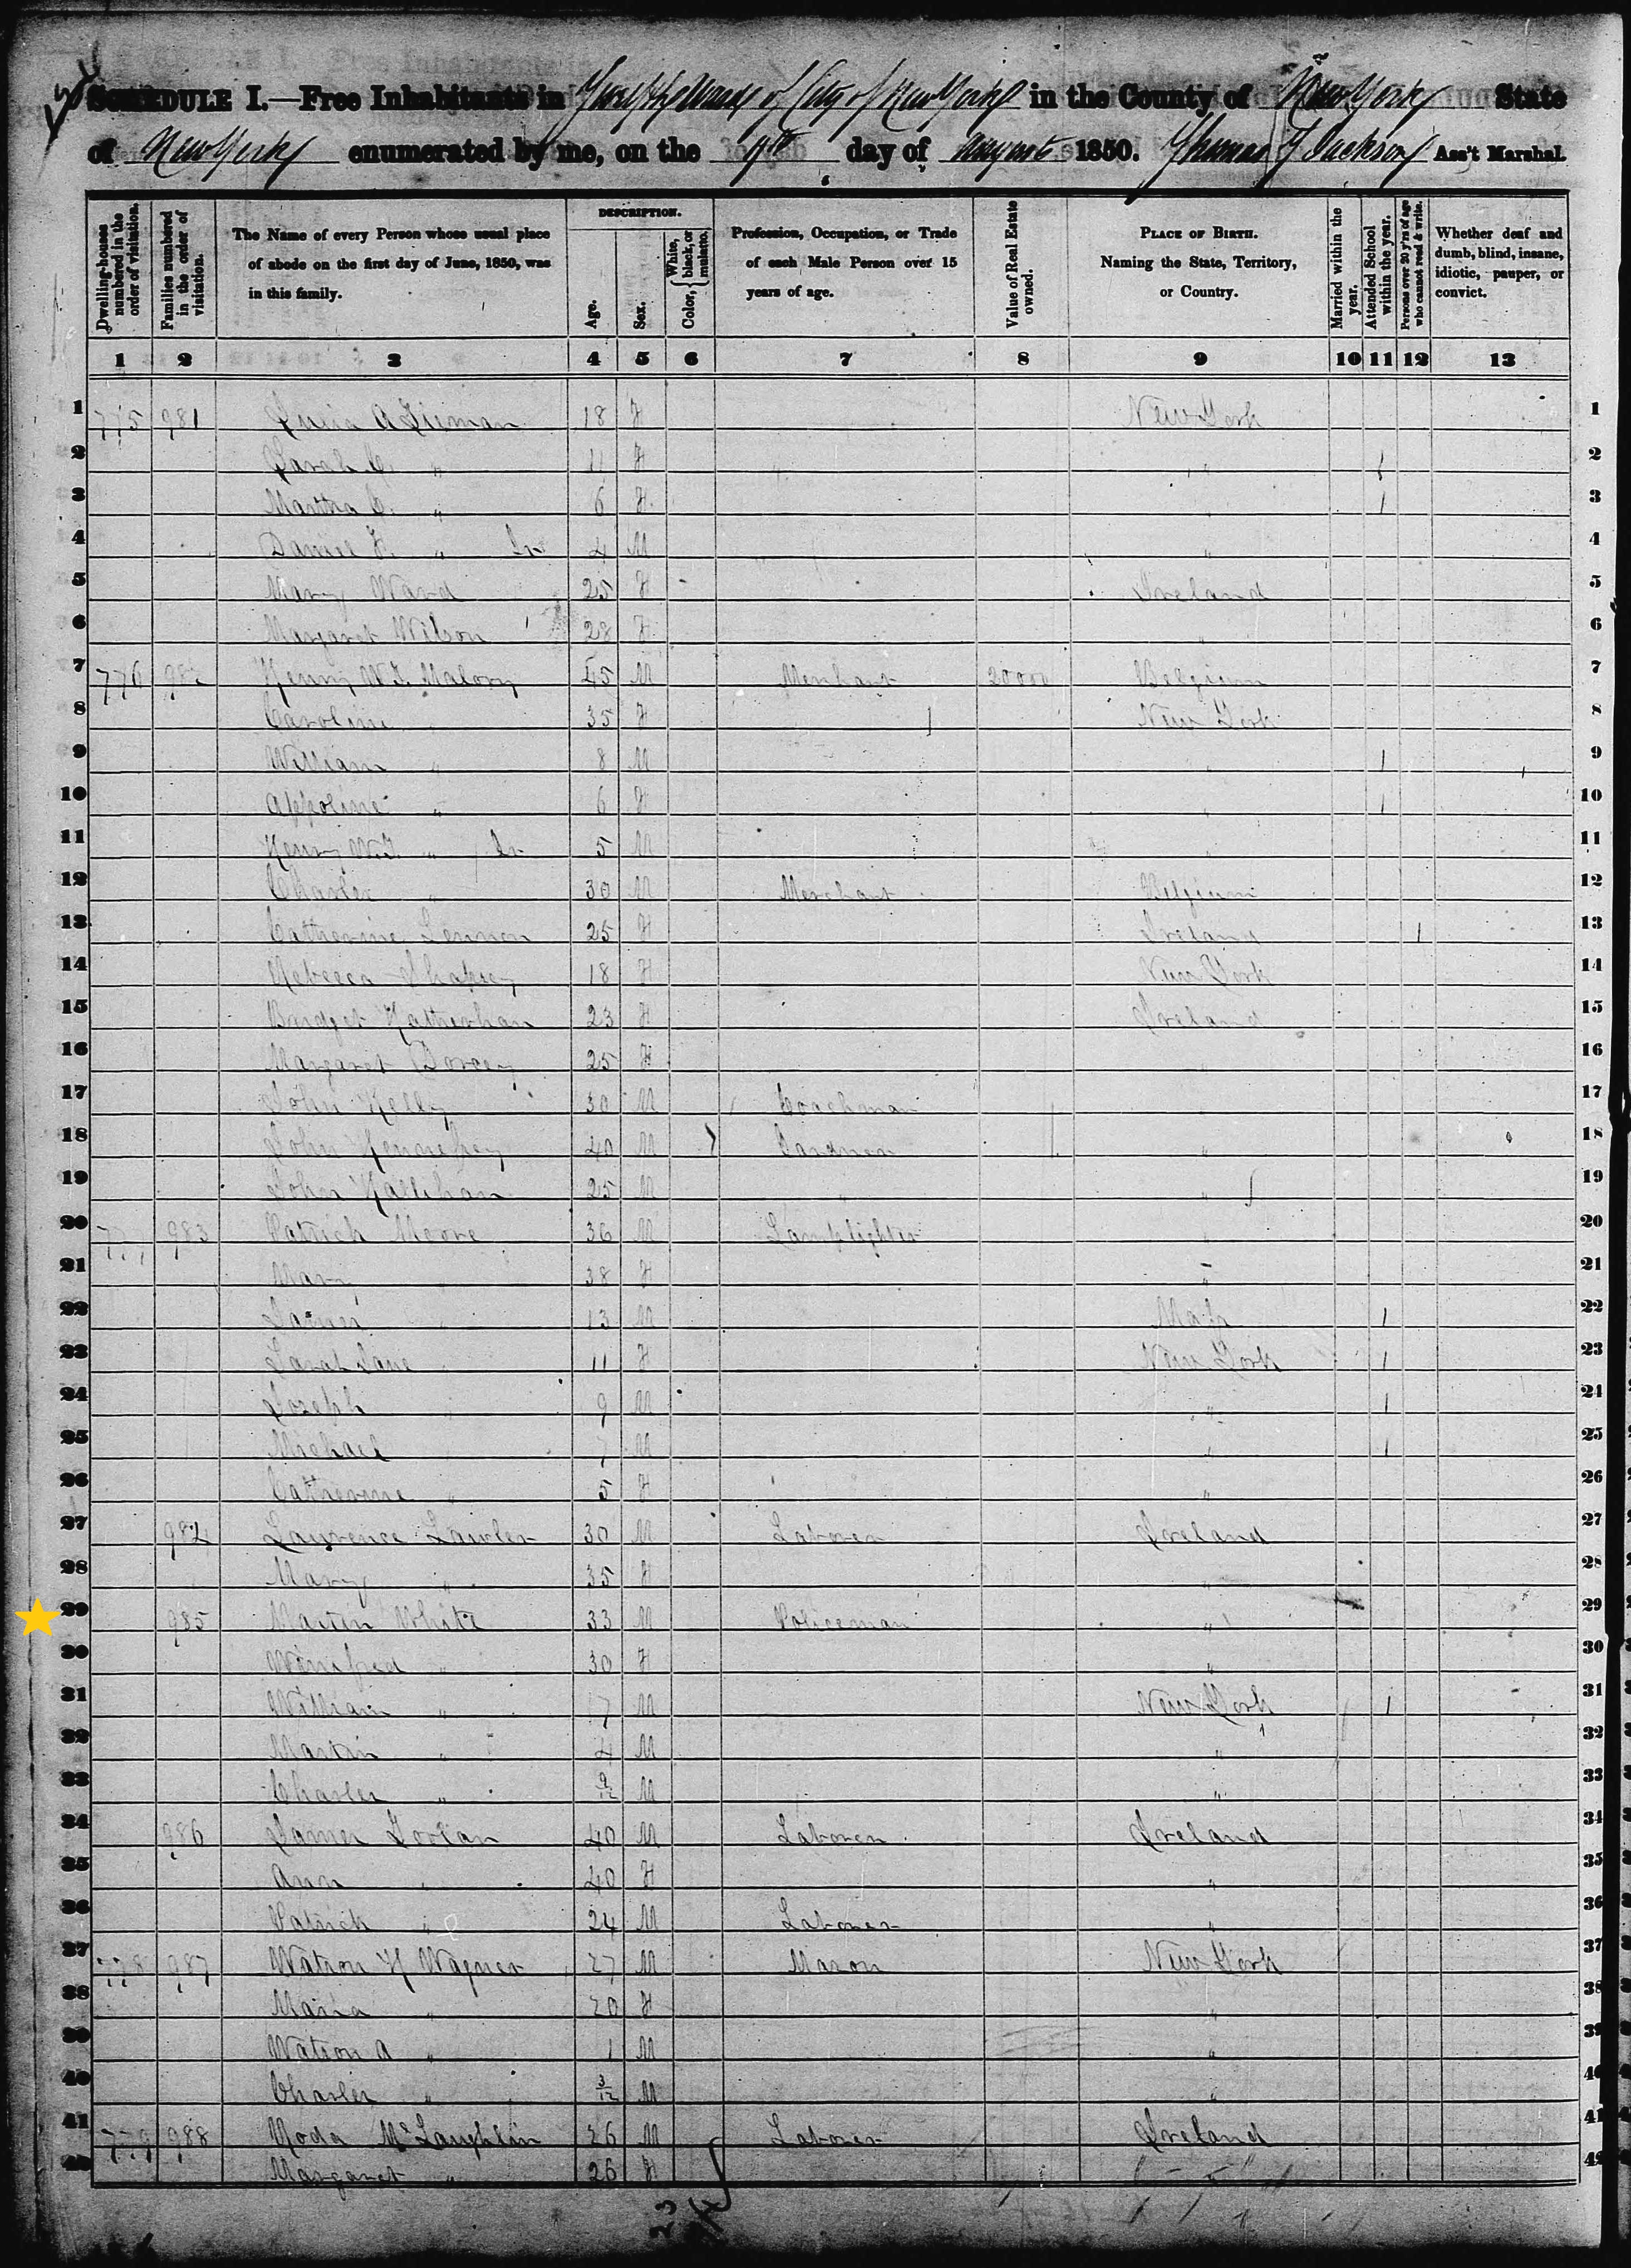 SCHEDULE I.—Free Inhabitants in Twelfth Ward of City of New York in the County of New York State
of New York enumerated by me, on the 9th day of August 1850. Thomas J Jackson Ass't Marshal.
Dwelling-houses numbered in the order of visitation.
Families numbered in the order of visitation.
The Name of every Person whose usual place of abode on the first day of June, 1850, was in this family.
DESCRIPTION.
Age.
Sex.
Color, { White, black, or mulatto.
Profession, Occupation, or Trade of each Male Person over 15 years of age.
Value of Real Estate owned.
PLACE OF BIRTH. Naming the State, Territory, or Country.
Married within the year.
Attended School within the year.
Persons over 20 y'rs of age who cannot read & write.
Whether deaf and dumb, blind, insane, idiotic, pauper, or convict.
1 2 3 4 5 6 7 8 9 10 11 12 13
1 775 981 A 18 F New York 1
2 Sarah C. " 11 F " 1 2
3 Martha C. " 6 F " 1 3
4 Daniel F. " Jr 4 M " 4
5 Mary Ward 25 F Ireland 5
6 Margaret Wilson 28 F " 6
7 776 982 Henry W.T. Malory 45 M Merchant 20000 Belgium 7
8 Caroline " 35 F New York 8
9 William " 8 M " 1 9
10 Appoline " 6 F " 1 10
11 Henry W.T. " Jr 5 M " 11
12 Charles " 30 M Merchant Belgium 12
13 Catherine Lennon 25 F Ireland 1 13
14 Rebecca 18 F New York 14
15 Bridget 23 F Ireland 15
16 Margaret Dorcey 25 F " 16
17 John Kelly 30 M Coachman " 17
18 John 40 M Gardner " 18
19 John Hallihan 25 M " " 19
20 777 983 Patrick Moore 36 M Lamplighter " 20
21 Mary " 38 F " 21
22 James " 13 M Mass 1 22
23 Sarah Jane " 11 F New York 1 23
24 Joseph " 9 M " 1 24
25 Michael " 7 M " 1 25
26 Catherine " 5 F " 26
27 984 Lawrence Lawler 30 M Laborer Ireland 27
28 Mary " 35 F " 28
29 985 Martin White 33 M Policeman " 29
30 Winifred " 30 F " 30
31 William " 7 M New York 1 31
32 Martin " 4 M " 32
33 Charles " 9/12 M " 33
34 986 James 40 M Laborer Ireland 34
35 Ann " 40 F " 35
36 Patrick " 24 M Laborer " 36
37 778 987 Watson H Wagner 27 M Mason New York 37
38 Maria " 20 F " 38
39 Watson A " 1 M " 39
40 Charles " 3/12 M " 40
41 779 988 McLaughlin 26 M Laborer Ireland 41
42 Margaret " 26 F " 42
23